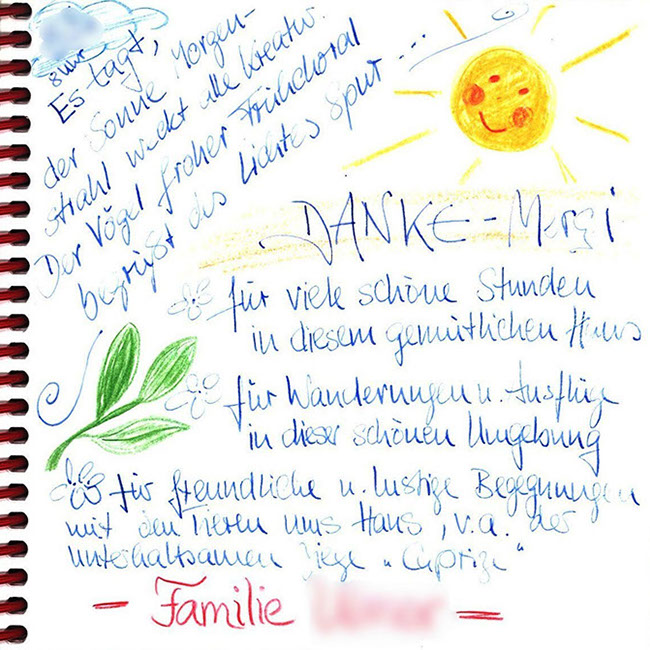 Es tagt,
der Sonne Morgen-
strahl weckt alle Kreatur.
Der Vögel froher Frühchoral
begrüßt des Lichtes Spur ...
DANKE - Merçi
für viele schöne Stunden
in diesem gemütlichen Haus
für Wanderungen u. Ausflüge
in dieser schönen Umgebung
für freundliche u. lustige Begegnungen
mit den Tieren ums Haus, v.a. der
unterhaltsamen Ziege „Caprizi“
- Familie